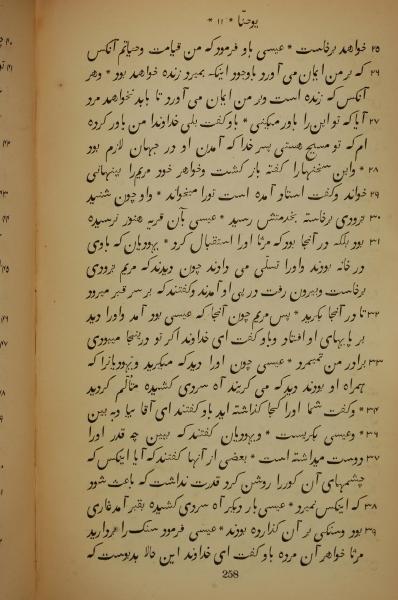 یوحنّا * ۱۱ *
۲۵ خواهد برخاست * عیسی باو فرمود که من قیامت وحیاتم آنکس
۲۶ که بر من ایمان می آورد باوجود اینکه بمیرد زنده خواهد بود * وهر
آنکس که زنده است وبر من ایمان می آورد تا بابد نخواهد مرد
۲۷ آیا که تو این را باور میکنی * باو گفت بلی خداوندا من باور کرده
ام که تو مسیح هستی پسر خدا که آمدن او در جهان لازم بود
۲۸ * واین سخنهارا گفته باز گشت وخواهر خود مریم را پنهانی
۲۹ خواند وگفت استاد آمده است تورا میخواند * واو چون شنید
۳۰ بزودی برخاسته بخدمتش رسید * عیسی بآن قریه هنوز نرسیده
۳۱ بود بلکه در آنجا بود که مرثا اورا استقبال کرد * یهودیان که باوی
در خانه بودند واورا تسلّی می دادند چون دیدند که مریم بزودی
برخاست وبیرون رفت در پی او آمدند وگفتند که بر سر قبر میرود
۳۲ تا در آنجا بگرید * پس مریم چون آنجا که عیسی بود آمد واورا دید
بر پایهای او افتاد وباو گفت ای خداوند اگر تو در اینجا میبودی
۳۳ برادر من نمیمرد * عیسی چون اورا دید که میگرید ویهودیانرا که
همراه او بودند دید که می گریند آه سردی کشیده متألّم گردید
۳۴ * وگفت شما اورا کجا گذاشته اید باو گفتند ای آقا بیا وبه بین
۳۶ * وعیسی بگریست * ویهودیان گفتند که ببین چه قدر اورا
۳۷ دوست میداشته است * بعضی از آنها گفتند که آیا اینکس که
چشمهای آن کوررا روشن کرد قدرت نداشت که باعث شود
۳۸ که اینکس نمیرد * عیسی بار دیگر آه سردی کشیده بقبر آمد غاری
۳۹ بود وسنگی بر آن گذارده بودند * عیسی فرمود سنگ را بردارید
مرثا خواهر آن مرده باو گفت ای خداوند این حالا بدبوست که
258